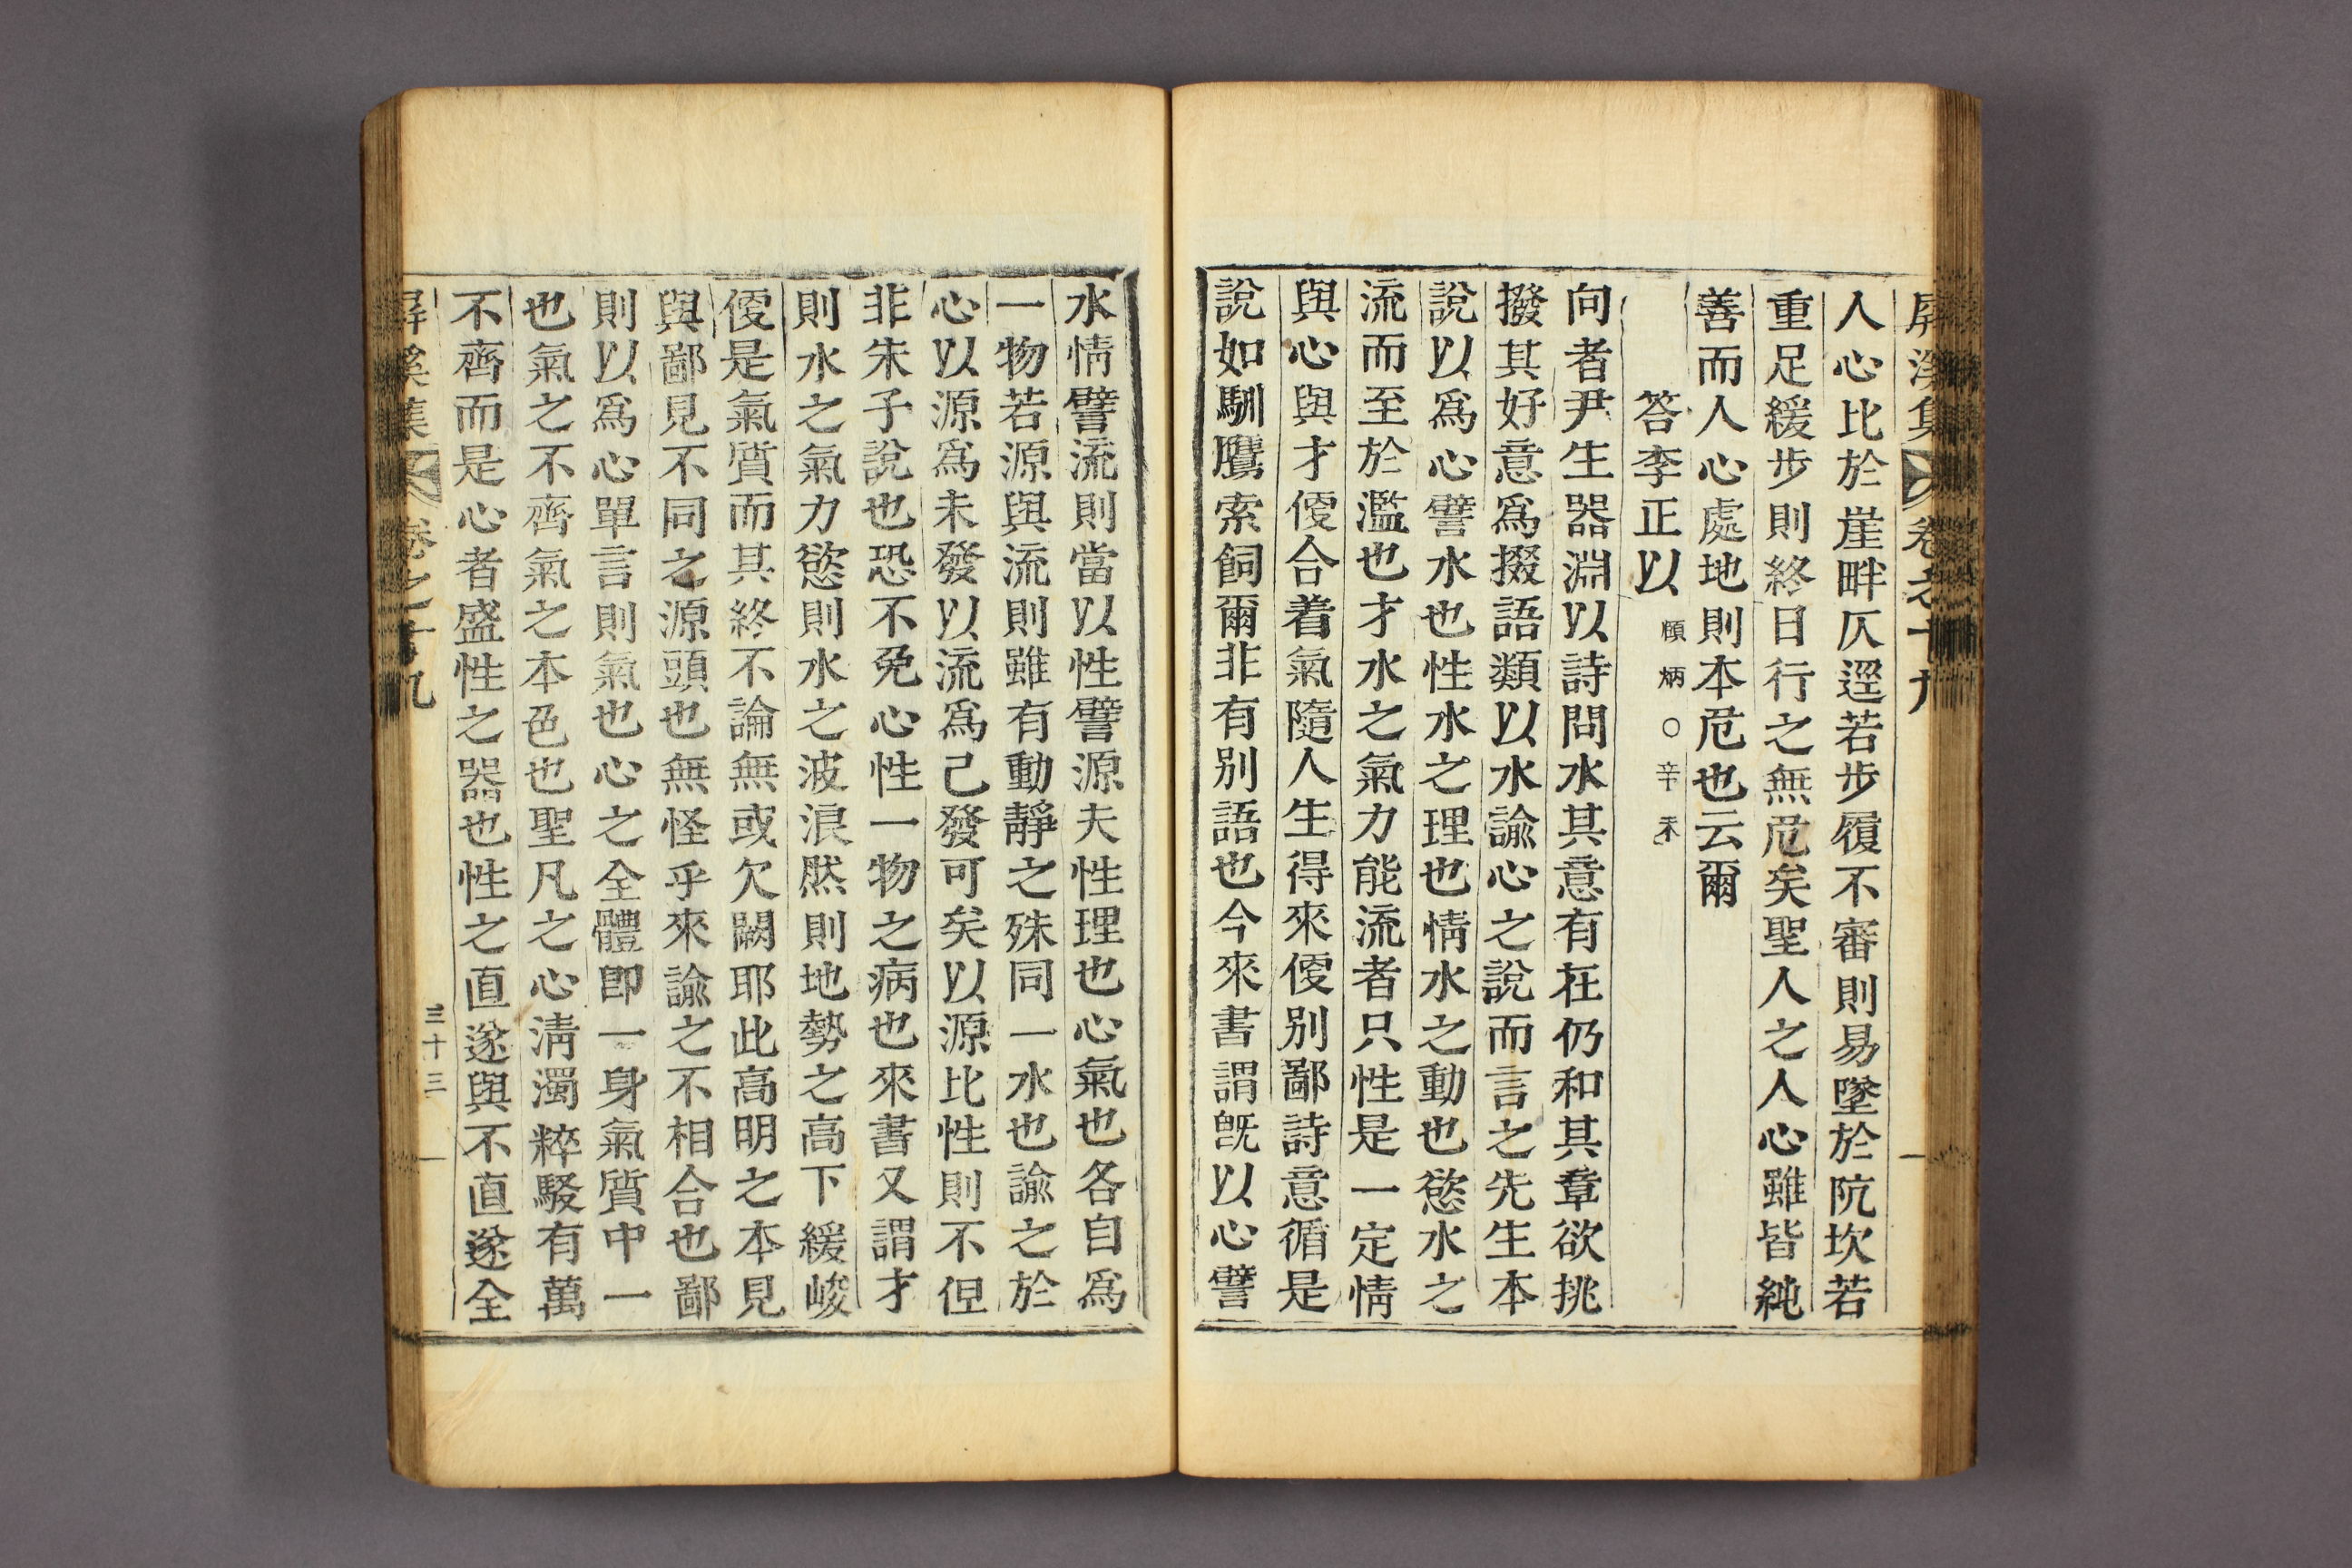 屛溪集 卷之十九
人心比於崖畔仄逕若步履不審則易墜於阬坎若
重足緩步則終日行之無危矣聖人之人心雖皆純
善而人心處地則本危也云爾
答李正以 頤炳○辛未
向者尹生器淵以詩問水其意有在仍和其章欲挑
撥其好意爲掇語類以水諭心之說而言之先生本
說以爲心譬水也性水之理也情水之動也慾水之
流而至於濫也才水之氣力能流者只性是一定情
與心與才便合着氣隨人生得來便別鄙詩意循是
說如馴鷹索飼爾非有別語也今來書謂旣以心譬
水情譬流則當以性譬源夫性理也心氣也各自爲
一物若源與流則雖有動靜之殊同一水也諭之於
心以源爲未發以流爲已發可矣以源比性則不但
非朱子說也恐不免心性一物之病也來書又謂才
則水之氣力慾則水之波浪然則地勢之高下緩峻
便是氣質而其終不論無或欠闕耶此高明之本見
與鄙見不同之源頭也無怪乎來諭之不相合也鄙
則以爲心單言則氣也心之全體卽一身氣質中一
也氣之不齊氣之本色也聖凡之心淸濁粹駁有萬
不齊而是心者盛性之器也性之直遂與不直遂全
屛溪集 卷之十九 三十三